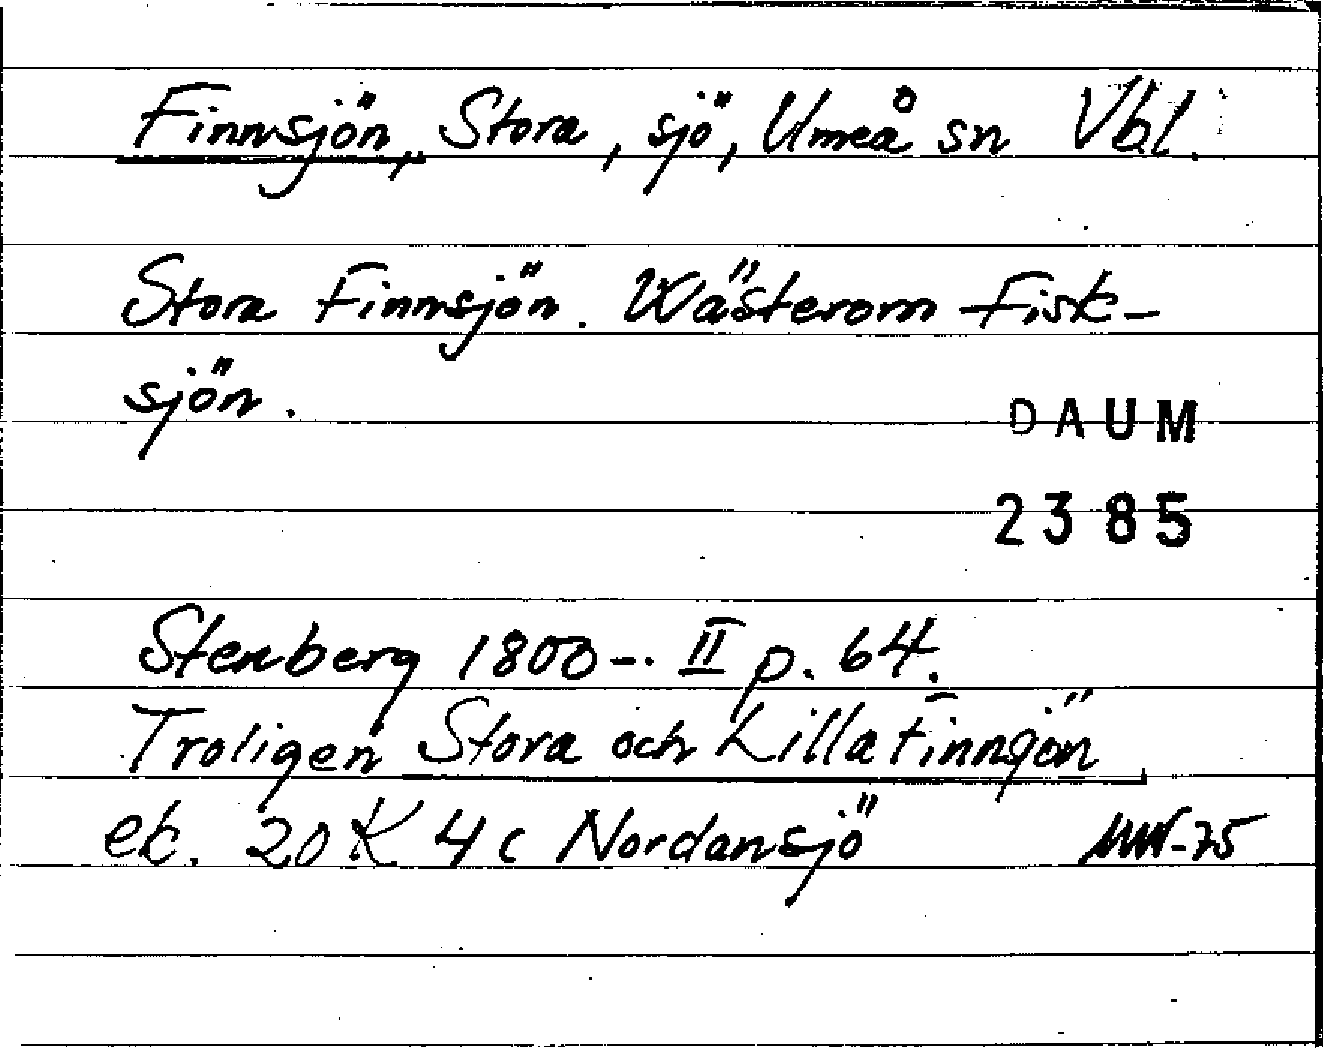 Finnsjön, Stora, sjö, Umeå sn Vbl.
Stora Finnsjön. Wästerom Fisk-
sjön.
DAUM
2385
Stenberg 1800-. II p. 64.
Troligen Stora och Lilla Finnsjön
ek. 20 K 4 c Nordansjö